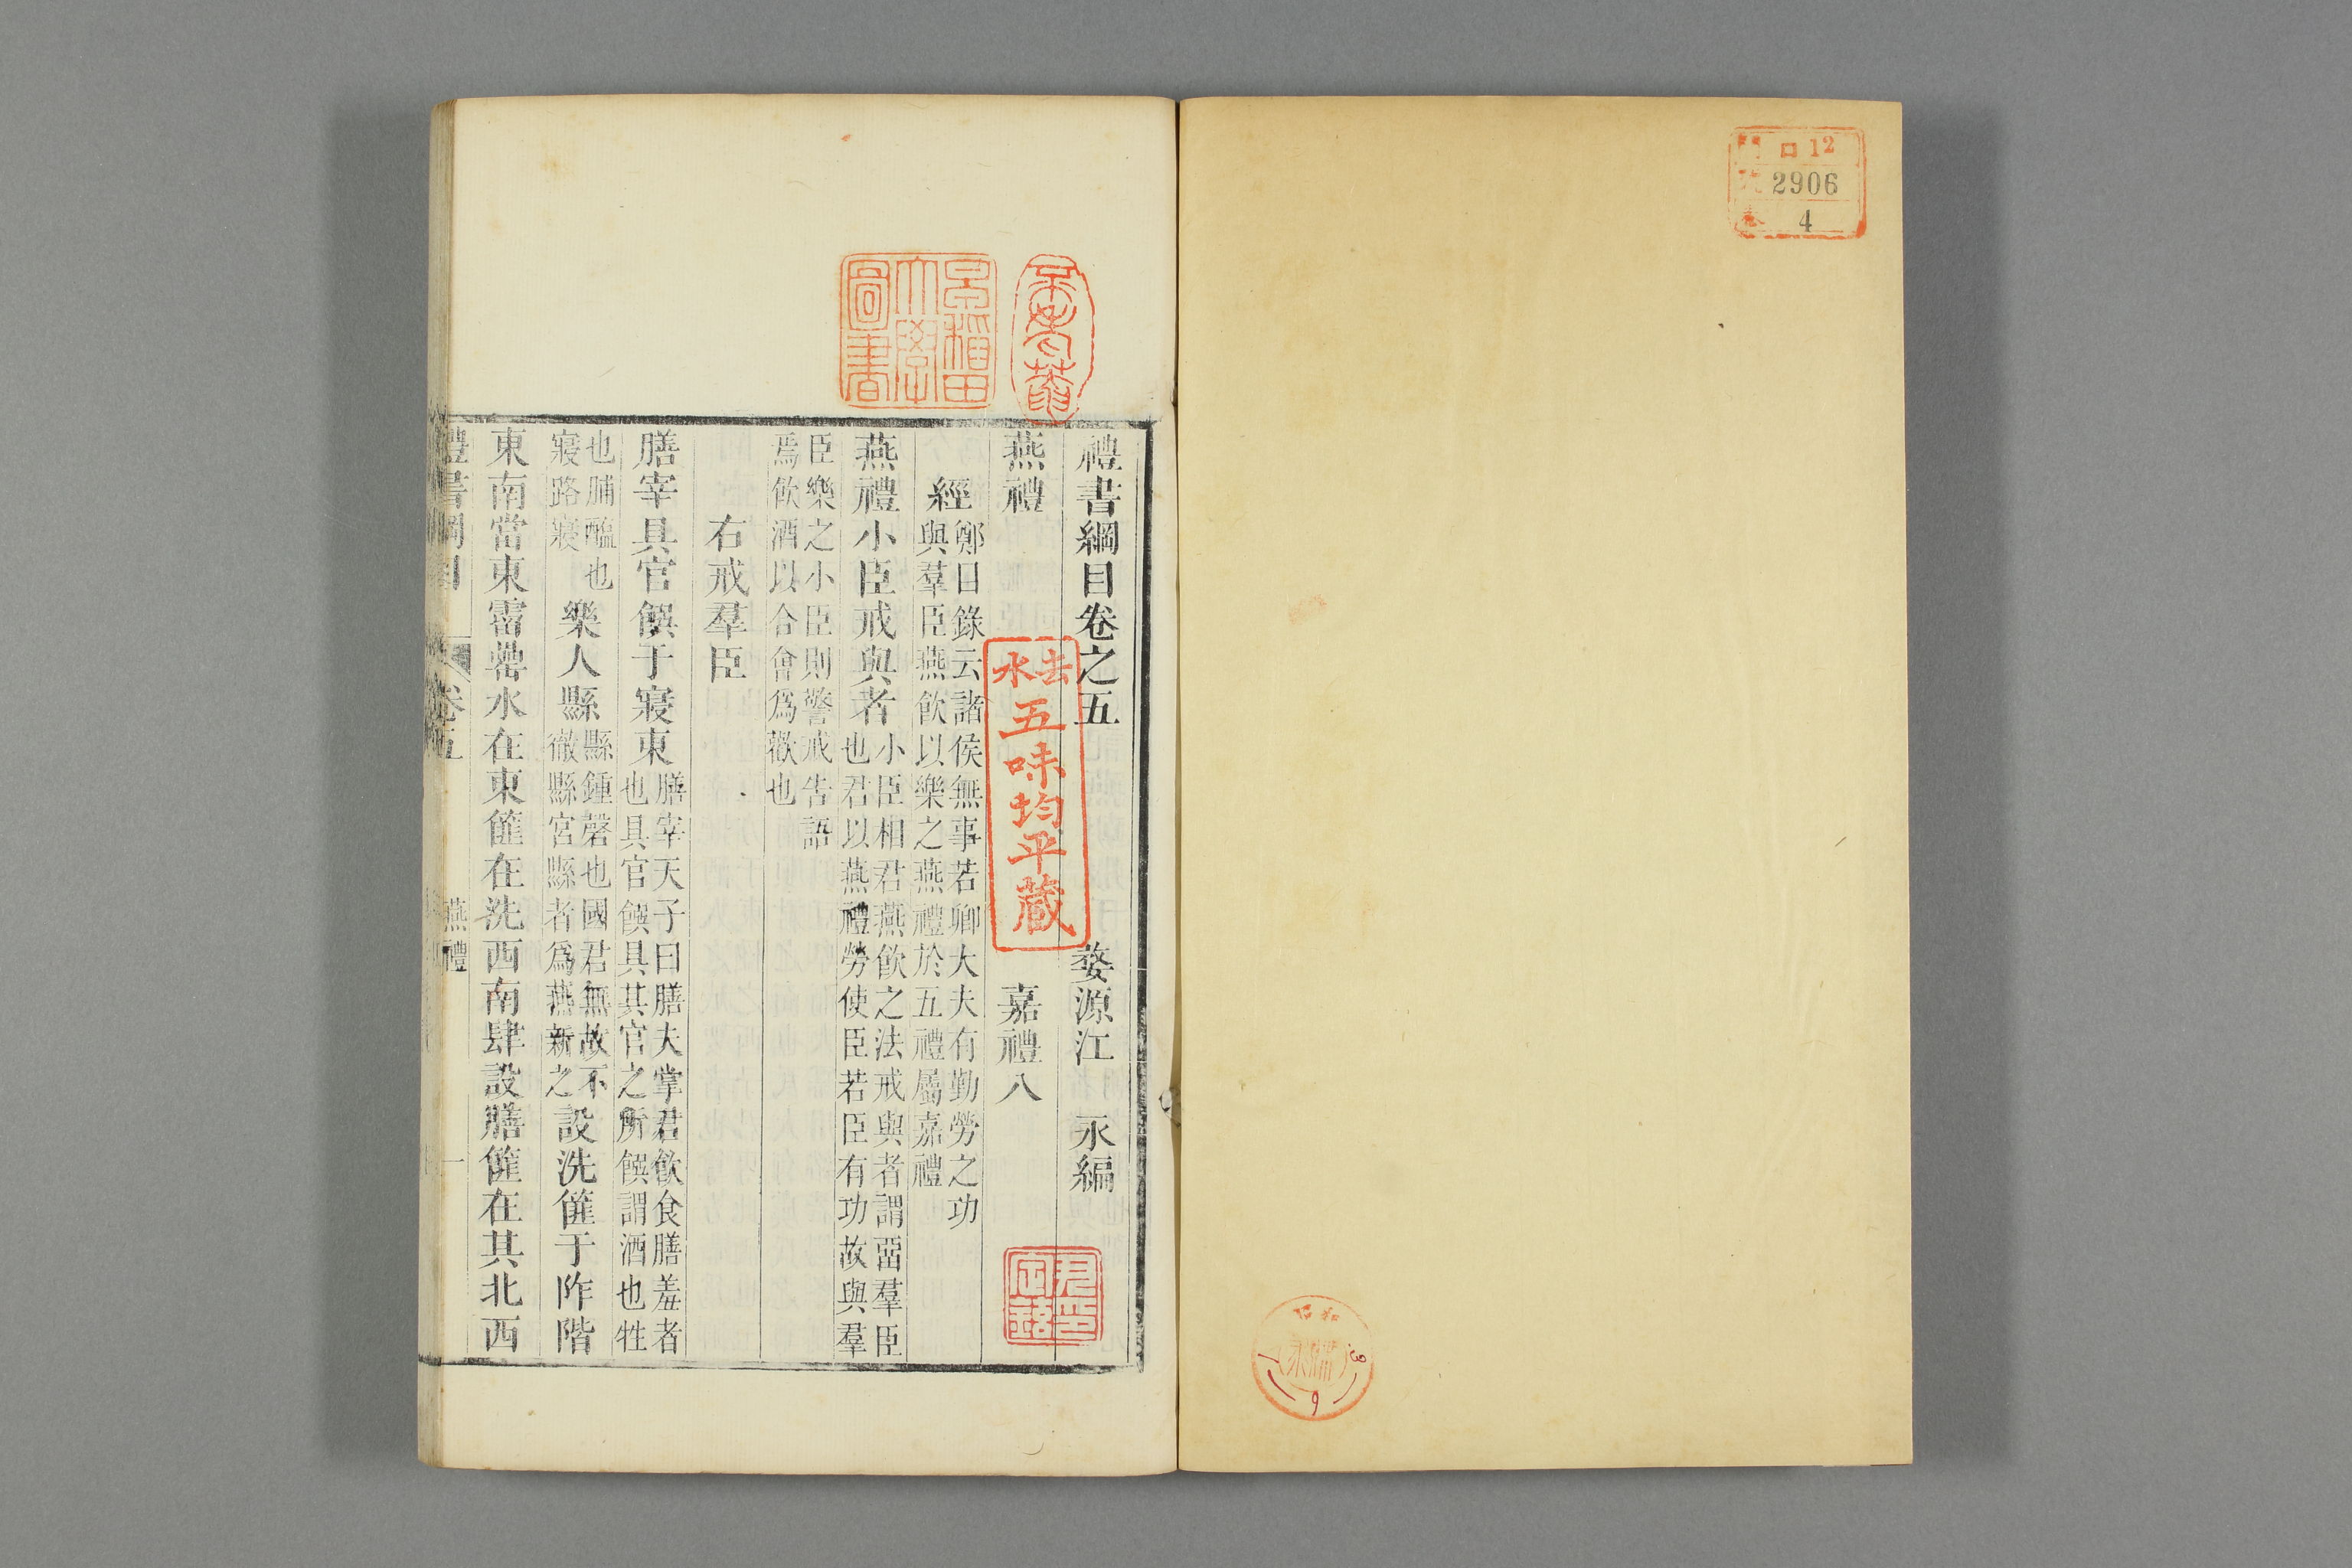 口 12
2906
4
9
早稲田
大學
圖書
去水
五味均平蔵
禮書綱目卷之五
婺源江　永編
燕禮
嘉禮八
經
鄭目錄云諸侯無事若卿大夫有勤勞之功
與羣臣燕飮以樂之燕禮於五禮屬嘉禮
燕禮小臣戒與者
小臣相君燕飮之法戒與者謂畱羣臣
也君以燕禮勞使臣若臣有功故與羣
臣樂之小臣則警戒告語
焉飮酒以合會爲歡也
右戒羣臣
膳宰具官饌于寢東
膳宰天子曰膳夫掌君飮食膳羞者
也具官饌具其官之所饌謂酒也牲
也脯醢也
寢路寢
樂人縣
縣鍾磬也國君無故不
徹縣宮縣者爲燕新之
設洗篚于阼階
東南當東霤罍水在東篚在洗西南肆設膳篚在其北西
禮書綱目
卷五
燕禮
一